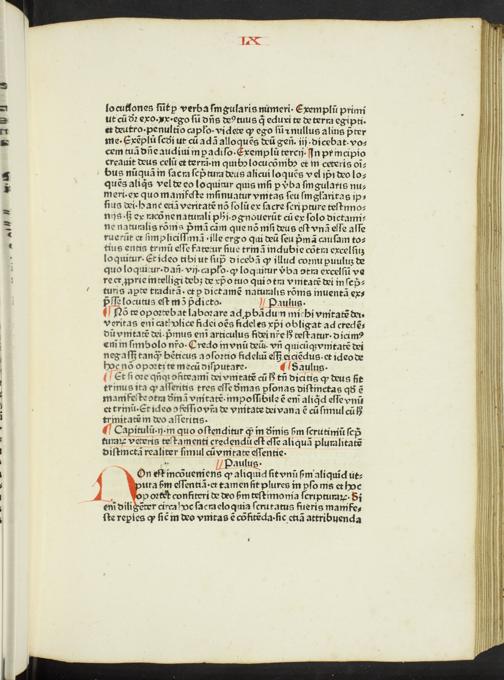 LX
locutiones sūt ꝑ verba singularis numeri. Exemplū primi
ut cū dr̄ exo. xx. ego sū dn̄s deꝰ tuus q̄ eduxi te de terra egipti.
et deutro. penultio caplo. videte ꝙ ego sū ⁊ nullus alius p̄ter
me. Exēplū scdi ut cū adā alloquēs deū gen̄. iij. dicebat. vo-
cem tuā dn̄e audiui in ꝑadiso. Exemplū tercij. In principio
creauit deus celū et terrā in quibꝰ locucōnibꝰ et in ceteris oī-
bus nūquā in sacra scptura deus alicui loquēs vel ip̄i deo lo-
quēs aliqs vel de eo loquitur quis nisi ꝑ v̄ba singularis nu-
meri. ex quo manifeste insinuatur vnitas seu singlaritas ip-
sius dei. hanc etiā veritatē nō solū ex sacre scripture testimo-
nijs. sꝫ ex racōne naturali phī. ognouerūt cū ex solo dictami-
ne naturalis rōnis pͥmā cām que nō nisi deus est vnā esse asse
ruerūt et simplicissimā. ille ergo qui deū seu pͥmā causam to-
tius entis trinū esse fatetur siue trimā indubie cōtra excelsū
loquitur. Et ideo tibi ut suꝑ dicebā ꝙ illud cornu paruulū de
quo loquitur dan̄. vij. caplo. ꝙ loquitur v̄ba ɔtra excelsū ve
re et ꝓprie intelligi debꝫ de xp̄o tuo qui ɔtra vnitatē dei in scp-
turis aꝑte traditā. et ꝑ dictamē naturalis rōnis inuentā ex-
p̄sse locutus est in ꝓ p̄dicto. Paulus.
Nō te oportebat laborare ad ꝓbādū michi vnitatē dei.
veritas enī catholice fidei oēs fideles xp̄i obligat ad credē-
dū vnitatē dei. pͥmus enī articulus fidei nr̄e hͦ testatur. dicimꝰ
enī in simbolo nr̄o. Credo in vnū deū. vn̄ quicūqꝫ vnitatē dei
negasset tanqͣ hēticus a ɔsortio fideliū esset eiciēdus. et ideo de
hoc nō oportet te mecū disputare. Saulus.
Et si ore qn̄qꝫ ɔfiteami dei vnitatē cū hͦ tn̄ dicitis ꝙ deus sit
trinus ita ꝙ asseritis tres esse diuinas ꝑsonas distinctas qd̄ ē
manifeste ɔtra diuinā vnitatē. impossibile ē enī aliqd̄ esse vnū
et trinū. Et ideo ɔfessio vr̄a de vnitate dei vana ē cū simul cū hͦ
trinitatē in deo asseritis.
Capitulū. ij. in quo ostenditur ꝙ in diuinis sm̄ scrutiniū scp̄
turaꝝ veteris testamenti credendū est esse aliquā pluralitatē
distinctā realiter simul cū vnitate essentie.
Paulus.
Non est incōueniens ꝙ aliquid sit vnū sm̄ aliquid ut-
puta sm̄ essentiā. et tamen sit plures in ꝑsonis et hoc
oportet confiteri de deo sm̄ testimonia scripturaꝝ. Si
enī diligēter circa hoc sacra eloquia scrutatus fueris manife-
ste reꝑies ꝙ sic̄ in deo vnitas ē cōfitēda. sic etiā attribuenda